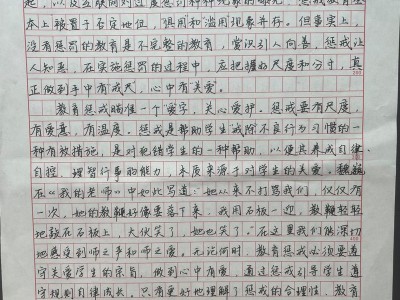 起，以及互联网对过度惩罚种种现象的曝光，惩戒教育基
本上被置于否定地位，惧用和滥用现象并存。但事实上，
没有惩罚的教育是不完整的教育，赏识引人向善，惩戒让
人知恶，在实施惩罚的过程中，应把握好尺度和分寸，真
正做到手中有戒尺，心中有"关爱"。
教育惩戒瞄准一个"爱"字，关心爱护。惩戒要有尺度，
有爱意，有温度。惩戒是帮助学生"戒除"不良行为习惯的一
种有效措施，是对犯错学生的一种帮助，以便其养成自律、
自控、理智行事的能力，本质来源于对学生的关爱。魏巍
在《我的老师》中如此写道："她从来不打骂我们，仅仅有
一次，她的教鞭好像要落下来，我用石板一迎，教鞭轻轻
地敲在石板上，大伙笑了，她也笑了。"在这里我们能深切
地感受到师之严和师之爱。无论何时，教育惩戒必须要遵
守关爱学生的宗旨，做到心中有爱，通过惩戒引导学生遵
守规则自律成长。只有更好地理解了惩戒的合理性，教育